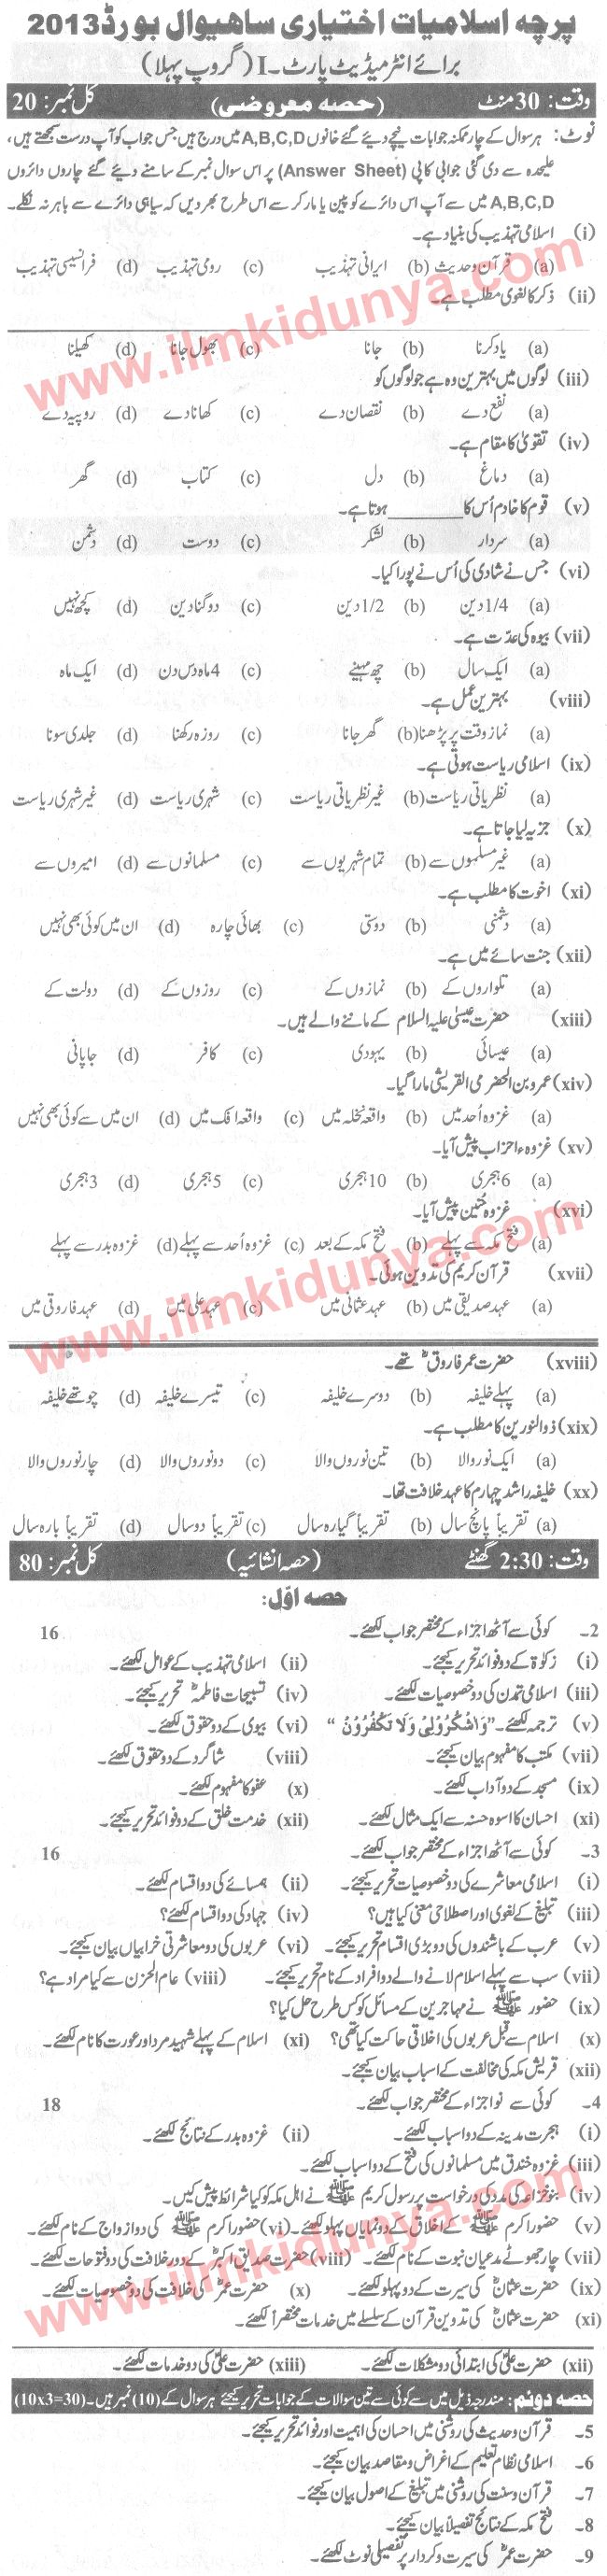 پرچہ اسلامیات اختیاری ساھیوال بورڈ 2013
برائے انٹرمیڈیٹ پارٹ۔I (گروپ پہلا)
وقت: 30 منٹ (حصہ معروضی) کل نمبر: 20
نوٹ: ہر سوال کے چار ممکنہ جوابات نیچے دیئے گئے خانوں A,B,C,D میں درج ہیں جس جواب کو آپ درست سمجھتے ہیں،
علیحدہ سے دی گئی جوابی کاپی (Answer Sheet) پر اس سوال نمبر کے سامنے دیئے گئے چاروں دائروں
A,B,C,D میں سے آپ اس دائرے کو پین یا مارکر سے اس طرح بھر دیں کہ سیاہی دائرے سے باہر نہ نکلے۔
(i) اسلامی تہذیب کی بنیاد ہے۔
(a) قرآن و حدیث (b) ایرانی تہذیب (c) رومی تہذیب (d) فرانسیسی تہذیب
(ii) ذکر کا لغوی مطلب ہے۔
(a) یاد کرنا (b) جانا (c) بھول جانا (d) کھیلنا
(iii) لوگوں میں بہترین وہ ہے جو لوگوں کو
(a) نفع دے (b) نقصان دے (c) کھانا دے (d) روپیہ دے
(iv) تقویٰ کا مقام ہے۔
(a) دماغ (b) دل (c) کتاب (d) گھر
(v) قوم کا خادم اُس کا ________ ہوتا ہے۔
(a) سردار (b) لشکر (c) دوست (d) دشمن
(vi) جس نے شادی کی اُس نے پورا کیا۔
(a) 1/4 دین (b) 1/2 دین (c) دوگنا دین (d) کچھ نہیں
(vii) بیوہ کی عدت ہے۔
(a) ایک سال (b) چھ مہینے (c) 4 ماہ دس دن (d) ایک ماہ
(viii) بہترین عمل ہے۔
(a) نماز وقت پر پڑھنا (b) گھر جانا (c) روزہ رکھنا (d) جلدی سونا
(ix) اسلامی ریاست ہوتی ہے۔
(a) نظریاتی ریاست (b) غیر نظریاتی ریاست (c) شہری ریاست (d) غیر شہری ریاست
(x) جزیہ لیا جاتا ہے۔
(a) غیر مسلموں سے (b) تمام شہریوں سے (c) مسلمانوں سے (d) امیروں سے
(xi) اخوت کا مطلب ہے۔
(a) دشمنی (b) دوستی (c) بھائی چارہ (d) ان میں کوئی بھی نہیں
(xii) جنت سائے میں ہے۔
(a) تلواروں کے (b) نمازوں کے (c) روزوں کے (d) دولت کے
(xiii) حضرت عیسیٰ علیہ السلام کے ماننے والے ہیں۔
(a) عیسائی (b) یہودی (c) کافر (d) جاپانی
(xiv) عمرو بن الحضرمی القریشی مارا گیا۔
(a) غزوہ اُحد میں (b) واقعہ نخلہ میں (c) واقعہ افک میں (d) ان میں سے کوئی بھی نہیں
(xv) غزوہ احزاب پیش آیا۔
(a) 6 ہجری (b) 10 ہجری (c) 5 ہجری (d) 3 ہجری
(xvi) غزوہ حُنین پیش آیا۔
(a) فتح مکہ سے پہلے (b) فتح مکہ کے بعد (c) غزوہ اُحد سے پہلے (d) غزوہ بدر سے پہلے
(xvii) قرآن کریم کی تدوین ہوئی۔
(a) عہد صدیقی میں (b) عہد عثمانی میں (c) عہد علی میں (d) عہد فاروقی میں
(xviii) حضرت عمر فاروقؓ تھے۔
(a) پہلے خلیفہ (b) دوسرے خلیفہ (c) تیسرے خلیفہ (d) چوتھے خلیفہ
(xix) ذوالنورین کا مطلب ہے۔
(a) ایک نور والا (b) تین نوروں والا (c) دو نوروں والا (d) چار نوروں والا
(xx) خلیفہ راشد چہارم کا عہد خلافت تھا۔
(a) تقریباً پانچ سال (b) تقریباً گیارہ سال (c) تقریباً دو سال (d) تقریباً بارہ سال
وقت: 2:30 گھنٹے (حصہ انشائیہ) کل نمبر: 80
حصہ اوّل:
2۔ کوئی سے آٹھ اجزاء کے مختصر جواب لکھئے۔ 16
(i) زکوٰۃ کے دو فوائد تحریر کیجئے۔ (ii) اسلامی تہذیب کے عوامل لکھئے۔
(iii) اسلامی تمدن کی دو خصوصیات لکھئے۔ (iv) تسبیحات فاطمہؓ تحریر کیجئے۔
(v) ترجمہ لکھئے۔ "وَاشْكُرُوْلِىْ وَلَا تَكْفُرُوْنْ" (vi) بیوی کے دو حقوق لکھئے۔
(vii) مکتب کا مفہوم بیان کیجئے۔ (viii) شاگرد کے دو حقوق لکھئے۔
(ix) مسجد کے دو آداب لکھئے۔ (x) عفو کا مفہوم لکھئے۔
(xi) احسان کا اسوہ حسنہ سے ایک مثال لکھئے۔ (xii) خدمت خلق کے دو فوائد تحریر کیجئے۔
3۔ کوئی سے آٹھ اجزاء کے مختصر جواب لکھئے۔ 16
(i) اسلامی معاشرے کی دو خصوصیات تحریر کیجئے۔ (ii) ہمسائے کی دو اقسام لکھئے۔
(iii) تبلیغ کے لغوی اور اصطلاحی معنی کیا ہیں؟ (iv) جہاد کی دو اقسام لکھئے؟
(v) عرب کے باشندوں کی دو بڑی اقسام تحریر کیجئے۔ (vi) عربوں کی دو معاشرتی خرابیاں بیان کیجئے۔
(vii) سب سے پہلے اسلام لانے والے دو افراد کے نام تحریر کیجئے۔ (viii) عام الحزن سے کیا مراد ہے؟
(ix) حضور ﷺ نے مہاجرین کے مسائل کو کس طرح حل کیا؟
(x) اسلام سے قبل عربوں کی اخلاقی حالت کیا تھی؟ (xi) اسلام کے پہلے شہید مرد اور عورت کا نام لکھئے۔
(xii) قریش مکہ کی مخالفت کے اسباب بیان کیجئے۔
4۔ کوئی سے نو اجزاء کے مختصر جواب لکھئے۔ 18
(i) ہجرت مدینہ کے دو اسباب لکھئے۔ (ii) غزوہ بدر کے نتائج لکھئے۔
(iii) غزوہ خندق میں مسلمانوں کی فتح کے دو اسباب لکھئے۔
(iv) بنو خزاعہ کی مدد کی درخواست پر رسول کریم ﷺ نے اہل مکہ کو کیا شرائط پیش کیں۔
(v) حضور اکرم ﷺ کے اخلاق کے دو نمایاں پہلو لکھئے۔ (vi) حضور اکرم ﷺ کی دو ازواج کے نام لکھئے۔
(vii) چار جھوٹے مدعیان نبوت کے نام لکھئے۔ (viii) حضرت صدیق اکبرؓ کے دور خلافت کی دو فتوحات لکھئے۔
(ix) حضرت عثمانؓ کی سیرت کے دو پہلو لکھئے۔ (x) حضرت عمرؓ کی خلافت کی دو خصوصیات لکھئے۔
(xi) حضرت عثمانؓ کی تدوین قرآن کے سلسلے میں خدمات مختصراً لکھئے۔
(xii) حضرت علیؓ کی ابتدائی دو مشکلات لکھئے۔ (xiii) حضرت علیؓ کی دو خدمات لکھئے۔
حصہ دوئم: مندرجہ ذیل میں سے کوئی سے تین سوالات کے جوابات تحریر کیجئے ہر سوال کے (10) نمبر ہیں۔ (10x3=30)
5۔ قرآن و حدیث کی روشنی میں احسان کی اہمیت اور فوائد تحریر کیجئے۔
6۔ اسلامی نظام تعلیم کے اغراض و مقاصد بیان کیجئے۔
7۔ قرآن و سنت کی روشنی میں تبلیغ کے اصول بیان کیجئے۔
8۔ فتح مکہ کے نتائج تفصیلاً بیان کیجئے۔
9۔ حضرت عمرؓ کی سیرت و کردار پر تفصیلی نوٹ لکھئے۔
www.ilmkidunya.com
www.ilmkidunya.com
www.ilmkidunya.com